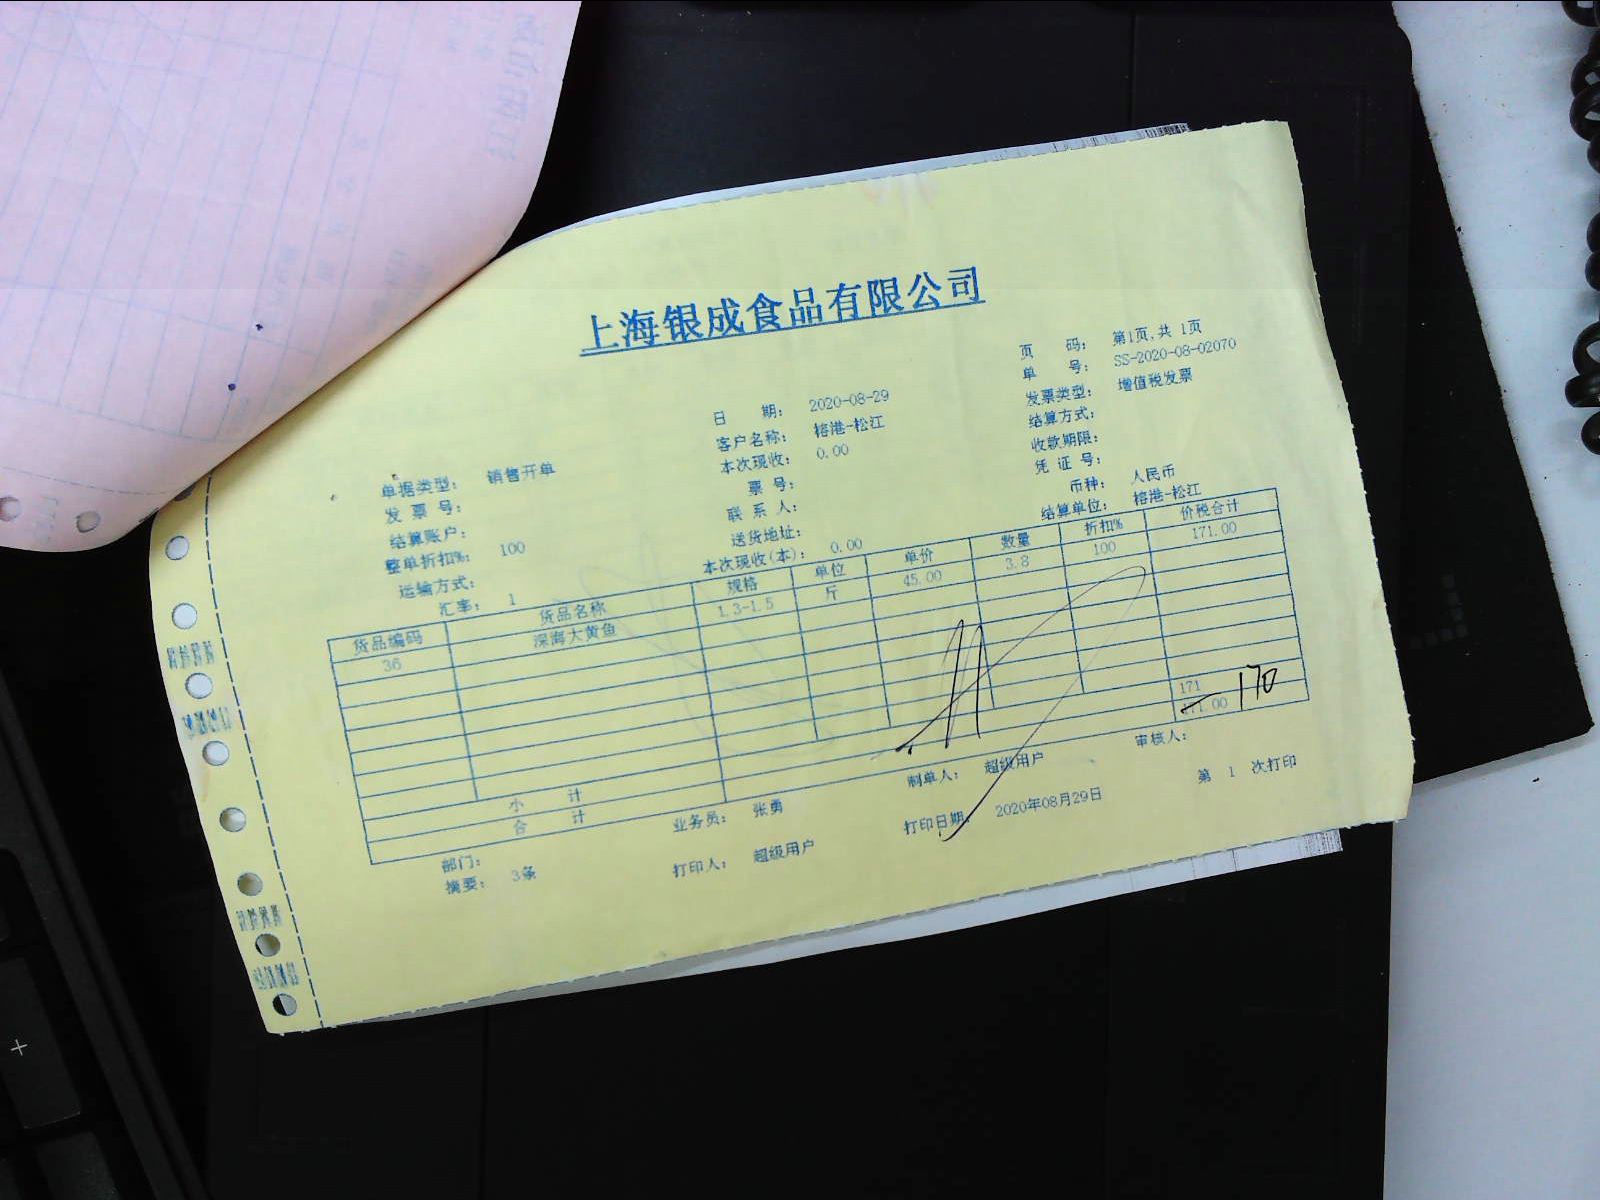 上海银成食品有限公司
页 码： 第1页,共 1页
单 号： SS-2020-08-02070
日 期： 2020-08-29 发票类型： 增值税发票
客户名称： 榕港-松江 结算方式：
本次现收： 0.00 收款期限：
单据类型： 销售开单 票 号： 凭 证 号：
发 票 号： 联 系 人： 币种： 人民币
结算账户： 送货地址： 结算单位： 榕港-松江
整单折扣%： 100 本次现收(本)： 0.00
运输方式：
汇率： 1
货品编码 货品名称 规格 单位 单价 数量 折扣% 价税合计
36 深海大黄鱼 1.3-1.5 斤 45.00 3.8 100 171.00
小 计 171
合 计 171.00 170
部门： 业务员： 张勇 制单人： 超级用户 审核人：
摘要： 3条 打印人： 超级用户 打印日期： 2020年08月29日 第 1 次打印
+